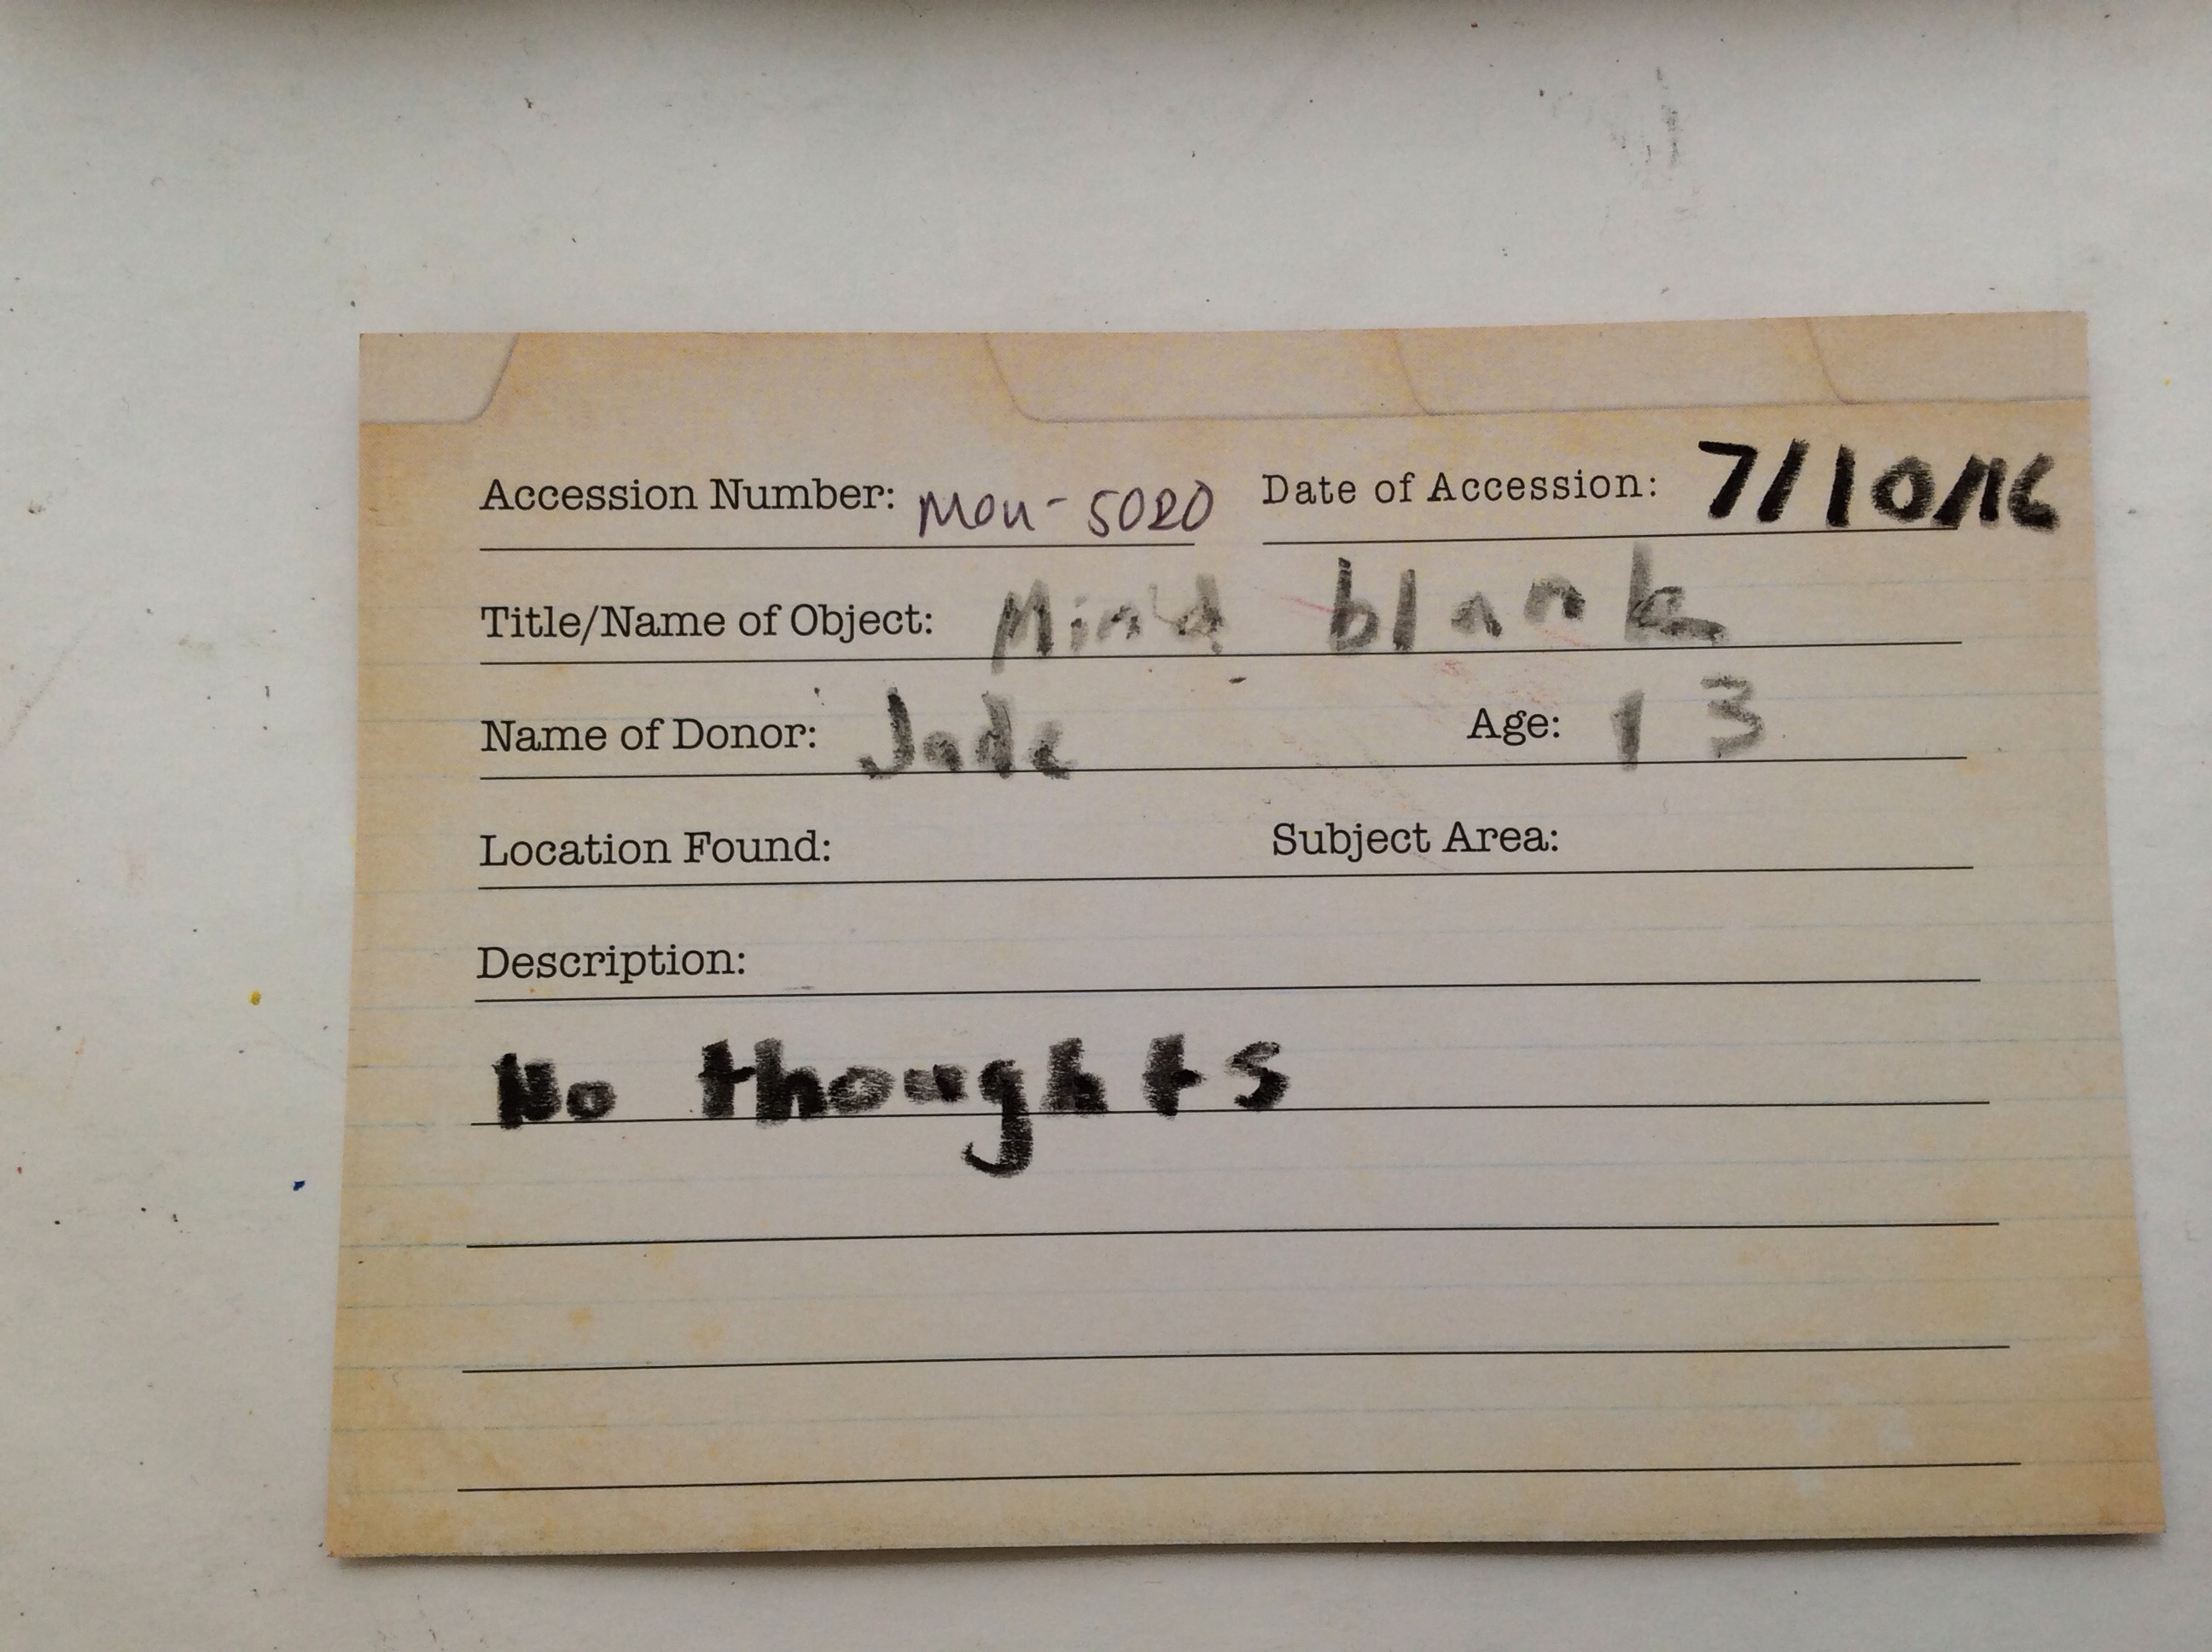 Accession Number: Mou-5020 Date of Accession: 7/10/16
Title/Name of Object: Mind blank
Name of Donor: Jade Age: 13
Location Found: Subject Area:
Description:
No thoughts